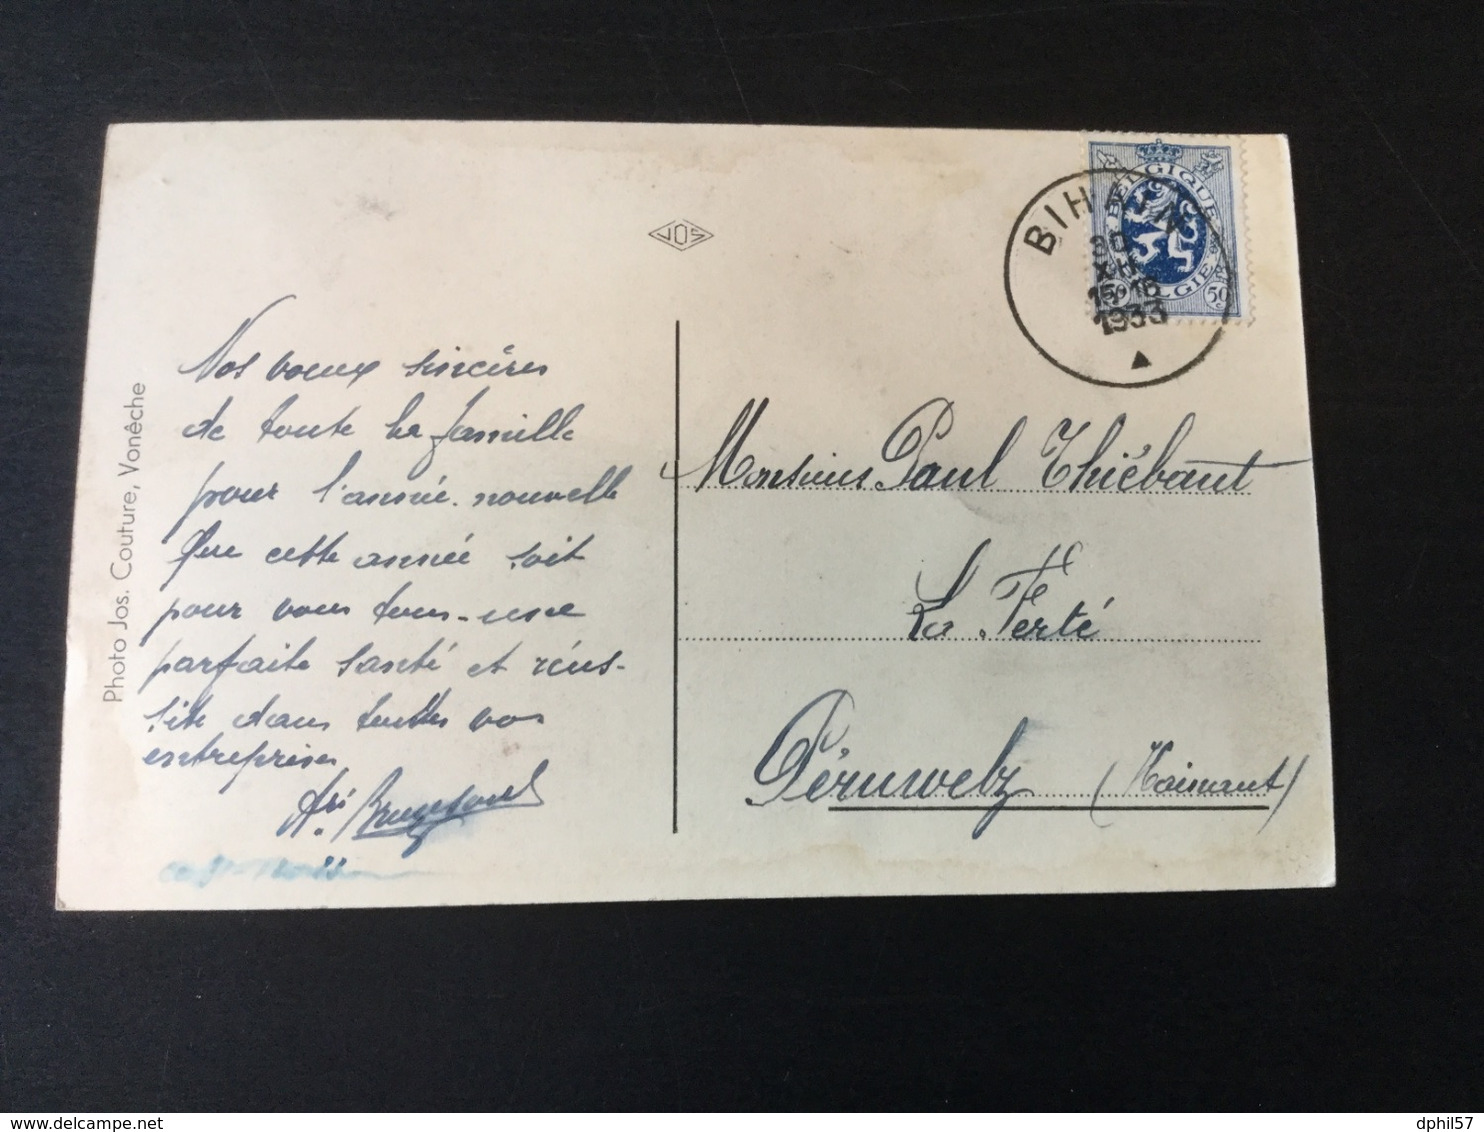 Photo Jos. Couture, Vonêche
JOS
BIHAIN
30
XII
15-16
1933
BELGIQUE
BELGIE
50 50
Nos voeux sincères
de toute la famille
pour l'année nouvelle
Que cette année soit
pour vous tous une
parfaite santé et réus-
site dans toutes vos
entreprises
Monsieur Paul Thiébaut
La Ferté
Péruwelz (Hainaut)
delcampe.net
dphil57